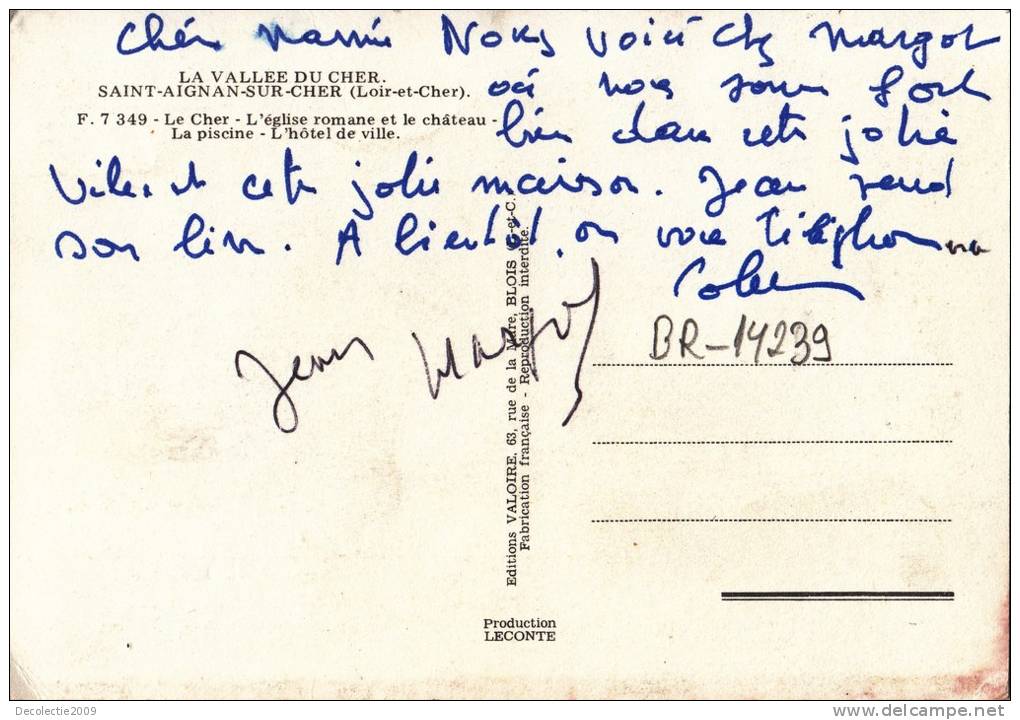 Chère Mamie Nous voici chez Margot
LA VALLEE DU CHER.
SAINT-AIGNAN-SUR-CHER (Loir-et-Cher).
où nous somm fort
F. 7 349 - Le Cher - L'église romane et le château -
La piscine - L'hôtel de ville.
bien dans cette jolie
ville et cette jolie maison. Jean rend
son livre. A bientôt, on vous téléphonera
Jean Margot
BR-14239
Editions VALOIRE, 63, rue de la Mare, BLOIS (L.-et-C.)
Fabrication française - Reproduction interdite.
Production
LECONTE
Decolectie2009
delcampe.net